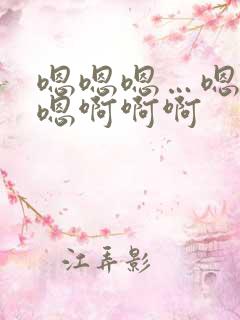 嗯嗯嗯…嗯
嗯啊啊啊
江弄影